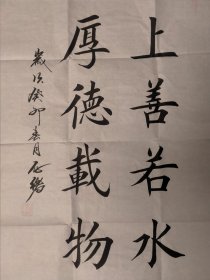 上善若水
厚德載物
歲次癸卯春月